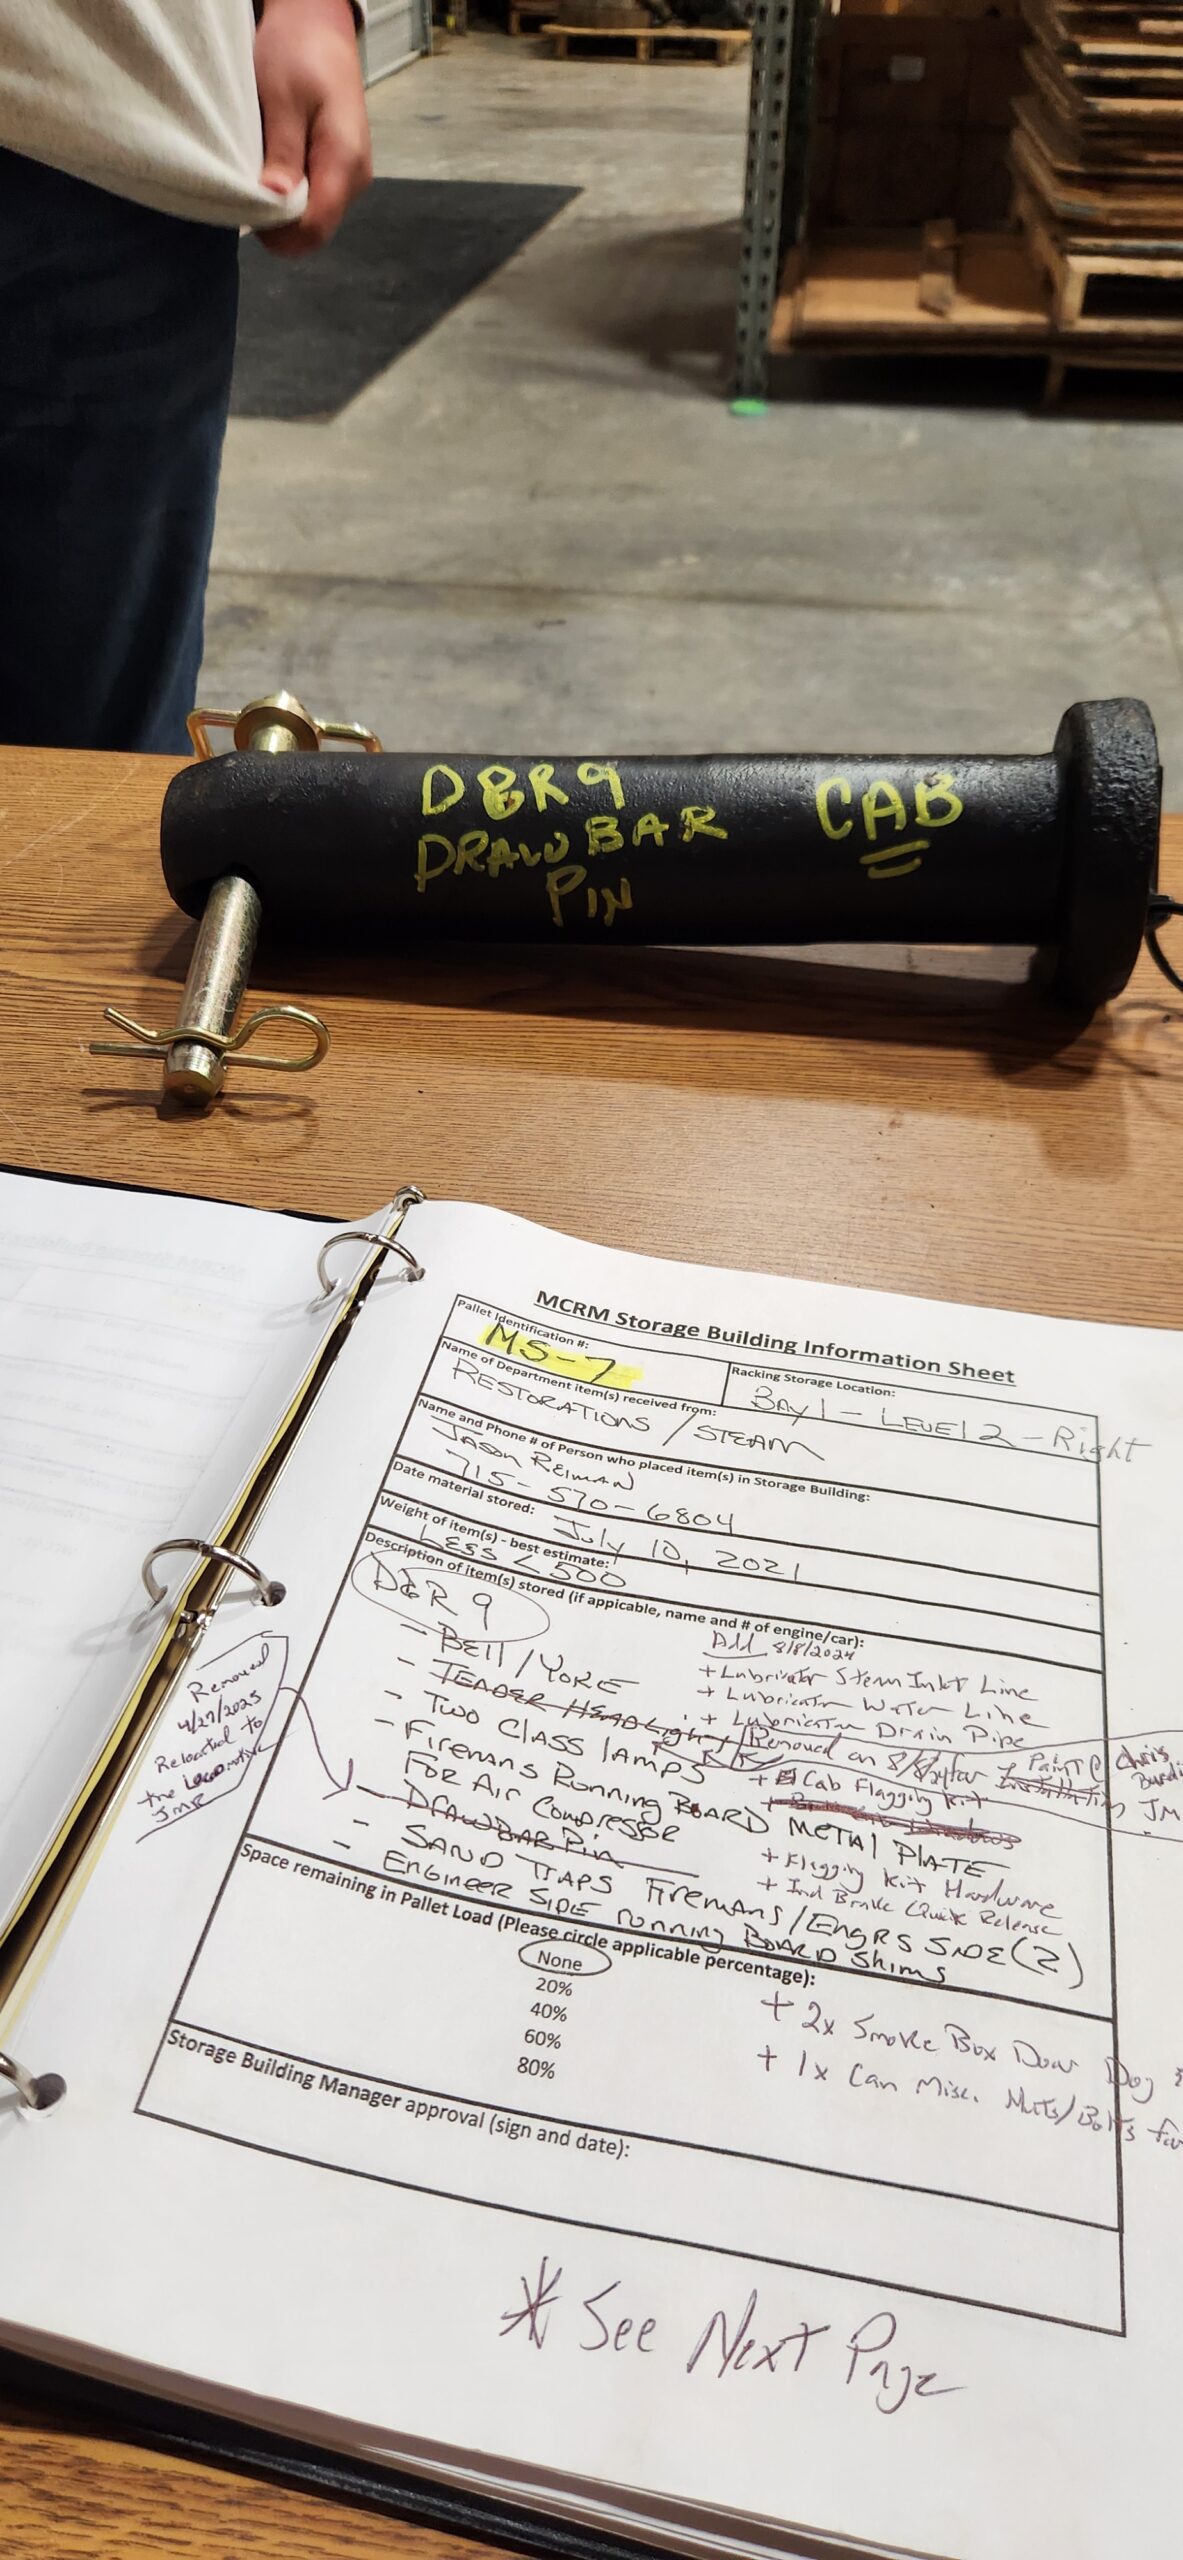 D&R 9
DRAWBAR
PIN
CAB
MCRM Storage Building Information Sheet
Pallet Identification #:
MS-7
Racking Storage Location:
BAY 1 - LEVEL 2 - Right
Name of Department item(s) received from:
RESTORATIONS / STEAM
Name and Phone # of Person who placed item(s) in Storage Building:
JASON REIMAN
715-570-6804
Date material stored: July 10, 2021
Weight of item(s) - best estimate:
Less < 500
Description of item(s) stored (if appicable, name and # of engine/car):
D&R 9
- BEll / YOKE
- TENDER HEADLight / Removed on 8/8/24 for Paint
- Two CLASS lAMPS
- FIREMANS RUNNING BOARD METAL PLATE
FOR AIR COMPRESSOR
- DRAWBAR PIN
- SAND TRAPS FIREMANS/ENGRS SIDE (2)
- ENGINEER SIDE RUNNING BOARD Shims
Add 8/8/2024
+ Lubricator Steam Inlet Line
+ Lubricator Water Line
+ Lubricator Drain Pipe
+ Cab Flagging Kit
+ Flagging Kit Hardware
+ Ind Brake Quick Release
Chris
JM
Removed
4/27/2025
Relocated to
the locomotive
JMR
Space remaining in Pallet Load (Please circle applicable percentage):
None
20%
40%
60%
80%
+ 2x Smoke Box Door Dog
+ 1x Can Misc. Nuts/Bolts for
Storage Building Manager approval (sign and date):
* See Next Page